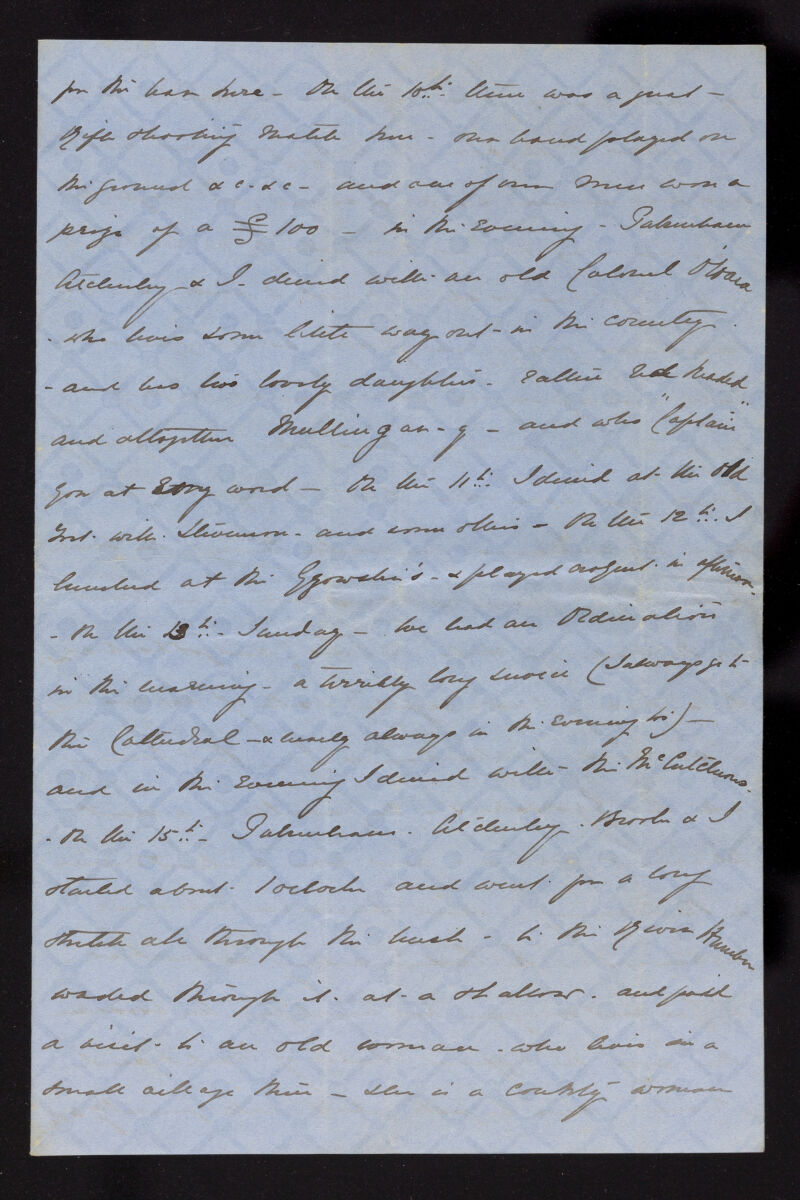 for the ham here - On the 10th there was a great -
Rifle shooting match here - our band played on
the ground &c. &c - and one of our men won a
prize of a £100 - in the Evening - Pakenham
Alderley & I - dined with an old Colonel O'Hara
- who lives some little way out - in the country
- and has two lovely daughters - rather Red headed
and altogether Mullingar-y - and who "Captain"
you at Every word - On the 11th I dined at the Old
Fort with Stevenson - and some others - On the 12th I
lunched at the - & played croquet in afternoon.
- On the 13th - Sunday - We had an Ordination
in the morning - a terribly long service (I always go to
the Cathedral - & nearly always in the Evening too) -
and in the Evening I dined with the McCutcheons.
- On the 15th - Pakenham. Alderley. Brooke & I
started about 1 oclock and went for a long
stretch all through the bush - to the River Humber
waded through it - at a shallow. and paid
a visit - to an old woman - who lives in a
small village there - she is a county woman